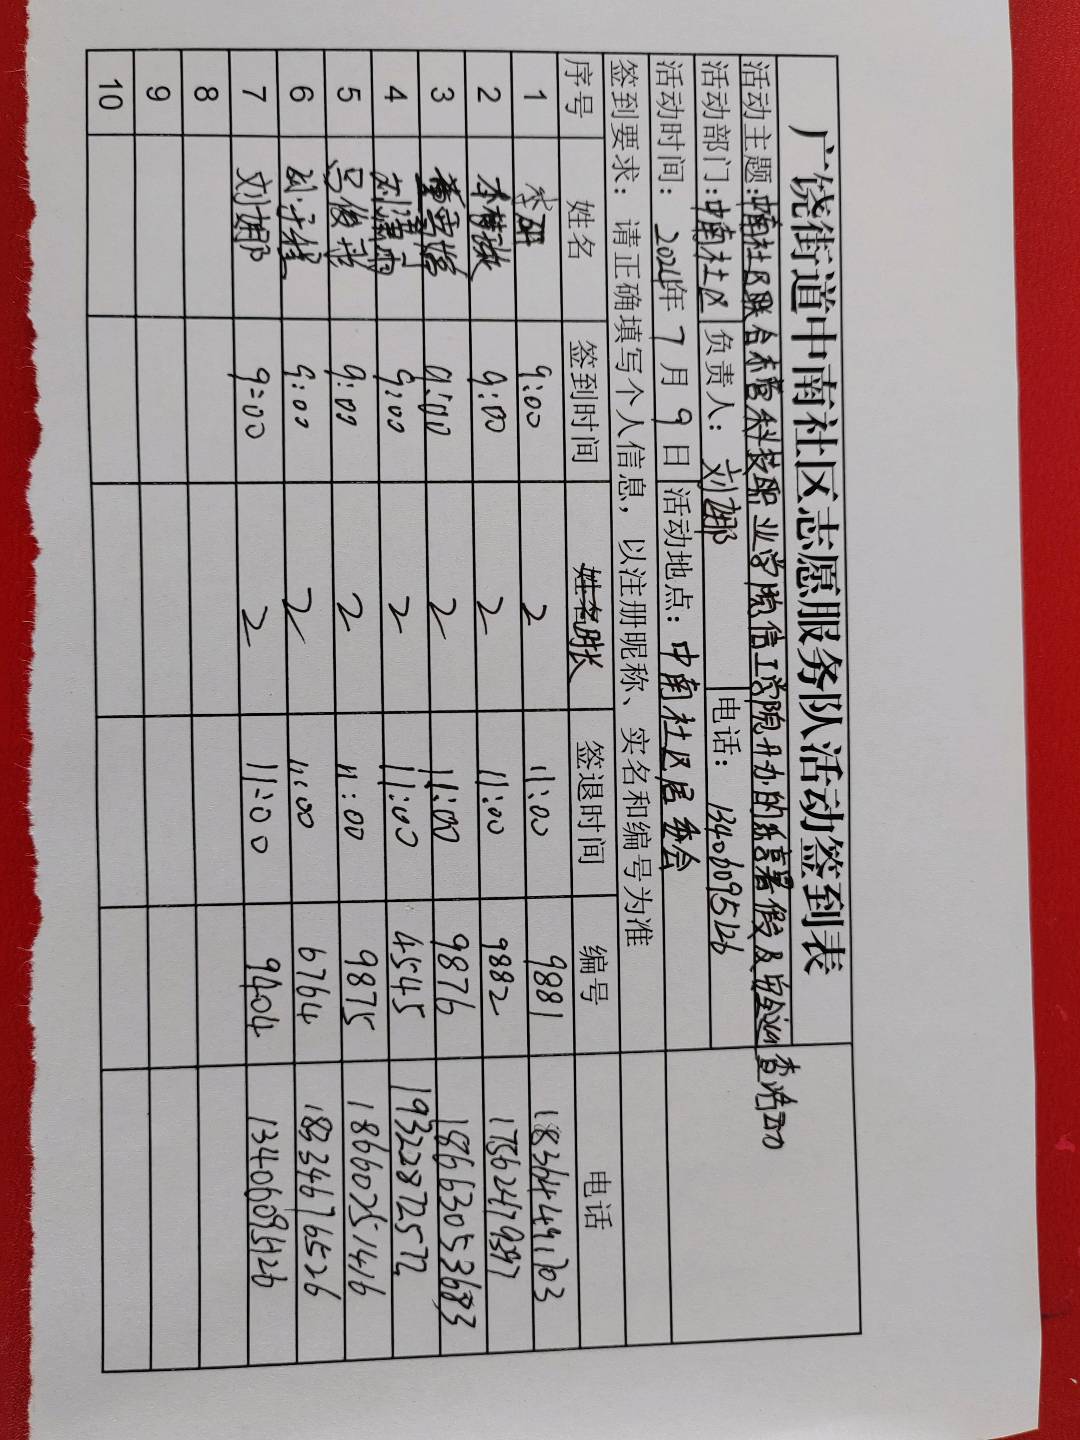 广饶街道中南社区志愿服务队活动签到表
活动主题:中南社区联合东营科技职业学院信工学院开办的 暑假
活动部门:中南社区 负责人: 刘娜 电话: 13406095126
活动时间: 2024年 7 月 9 日 活动地点: 中南社区居委会
签到要求: 请正确填写个人信息, 以注册昵称、实名和编号为准
序号 姓名 签到时间 时长 签退时间 编号 电话
1 9:00 2 11:00 9881 18364449703
2 9:00 2 11:00 9882 17562479397
3 9:00 2 11:00 9876 19663053683
4 9:00 2 11:00 4545 19322872572
5 9:00 2 11:00 9875 18660251416
6 9:00 2 11:00 6764 18234676526
7 刘娜 9:00 2 11:00 9404 13406095126
8
9
10